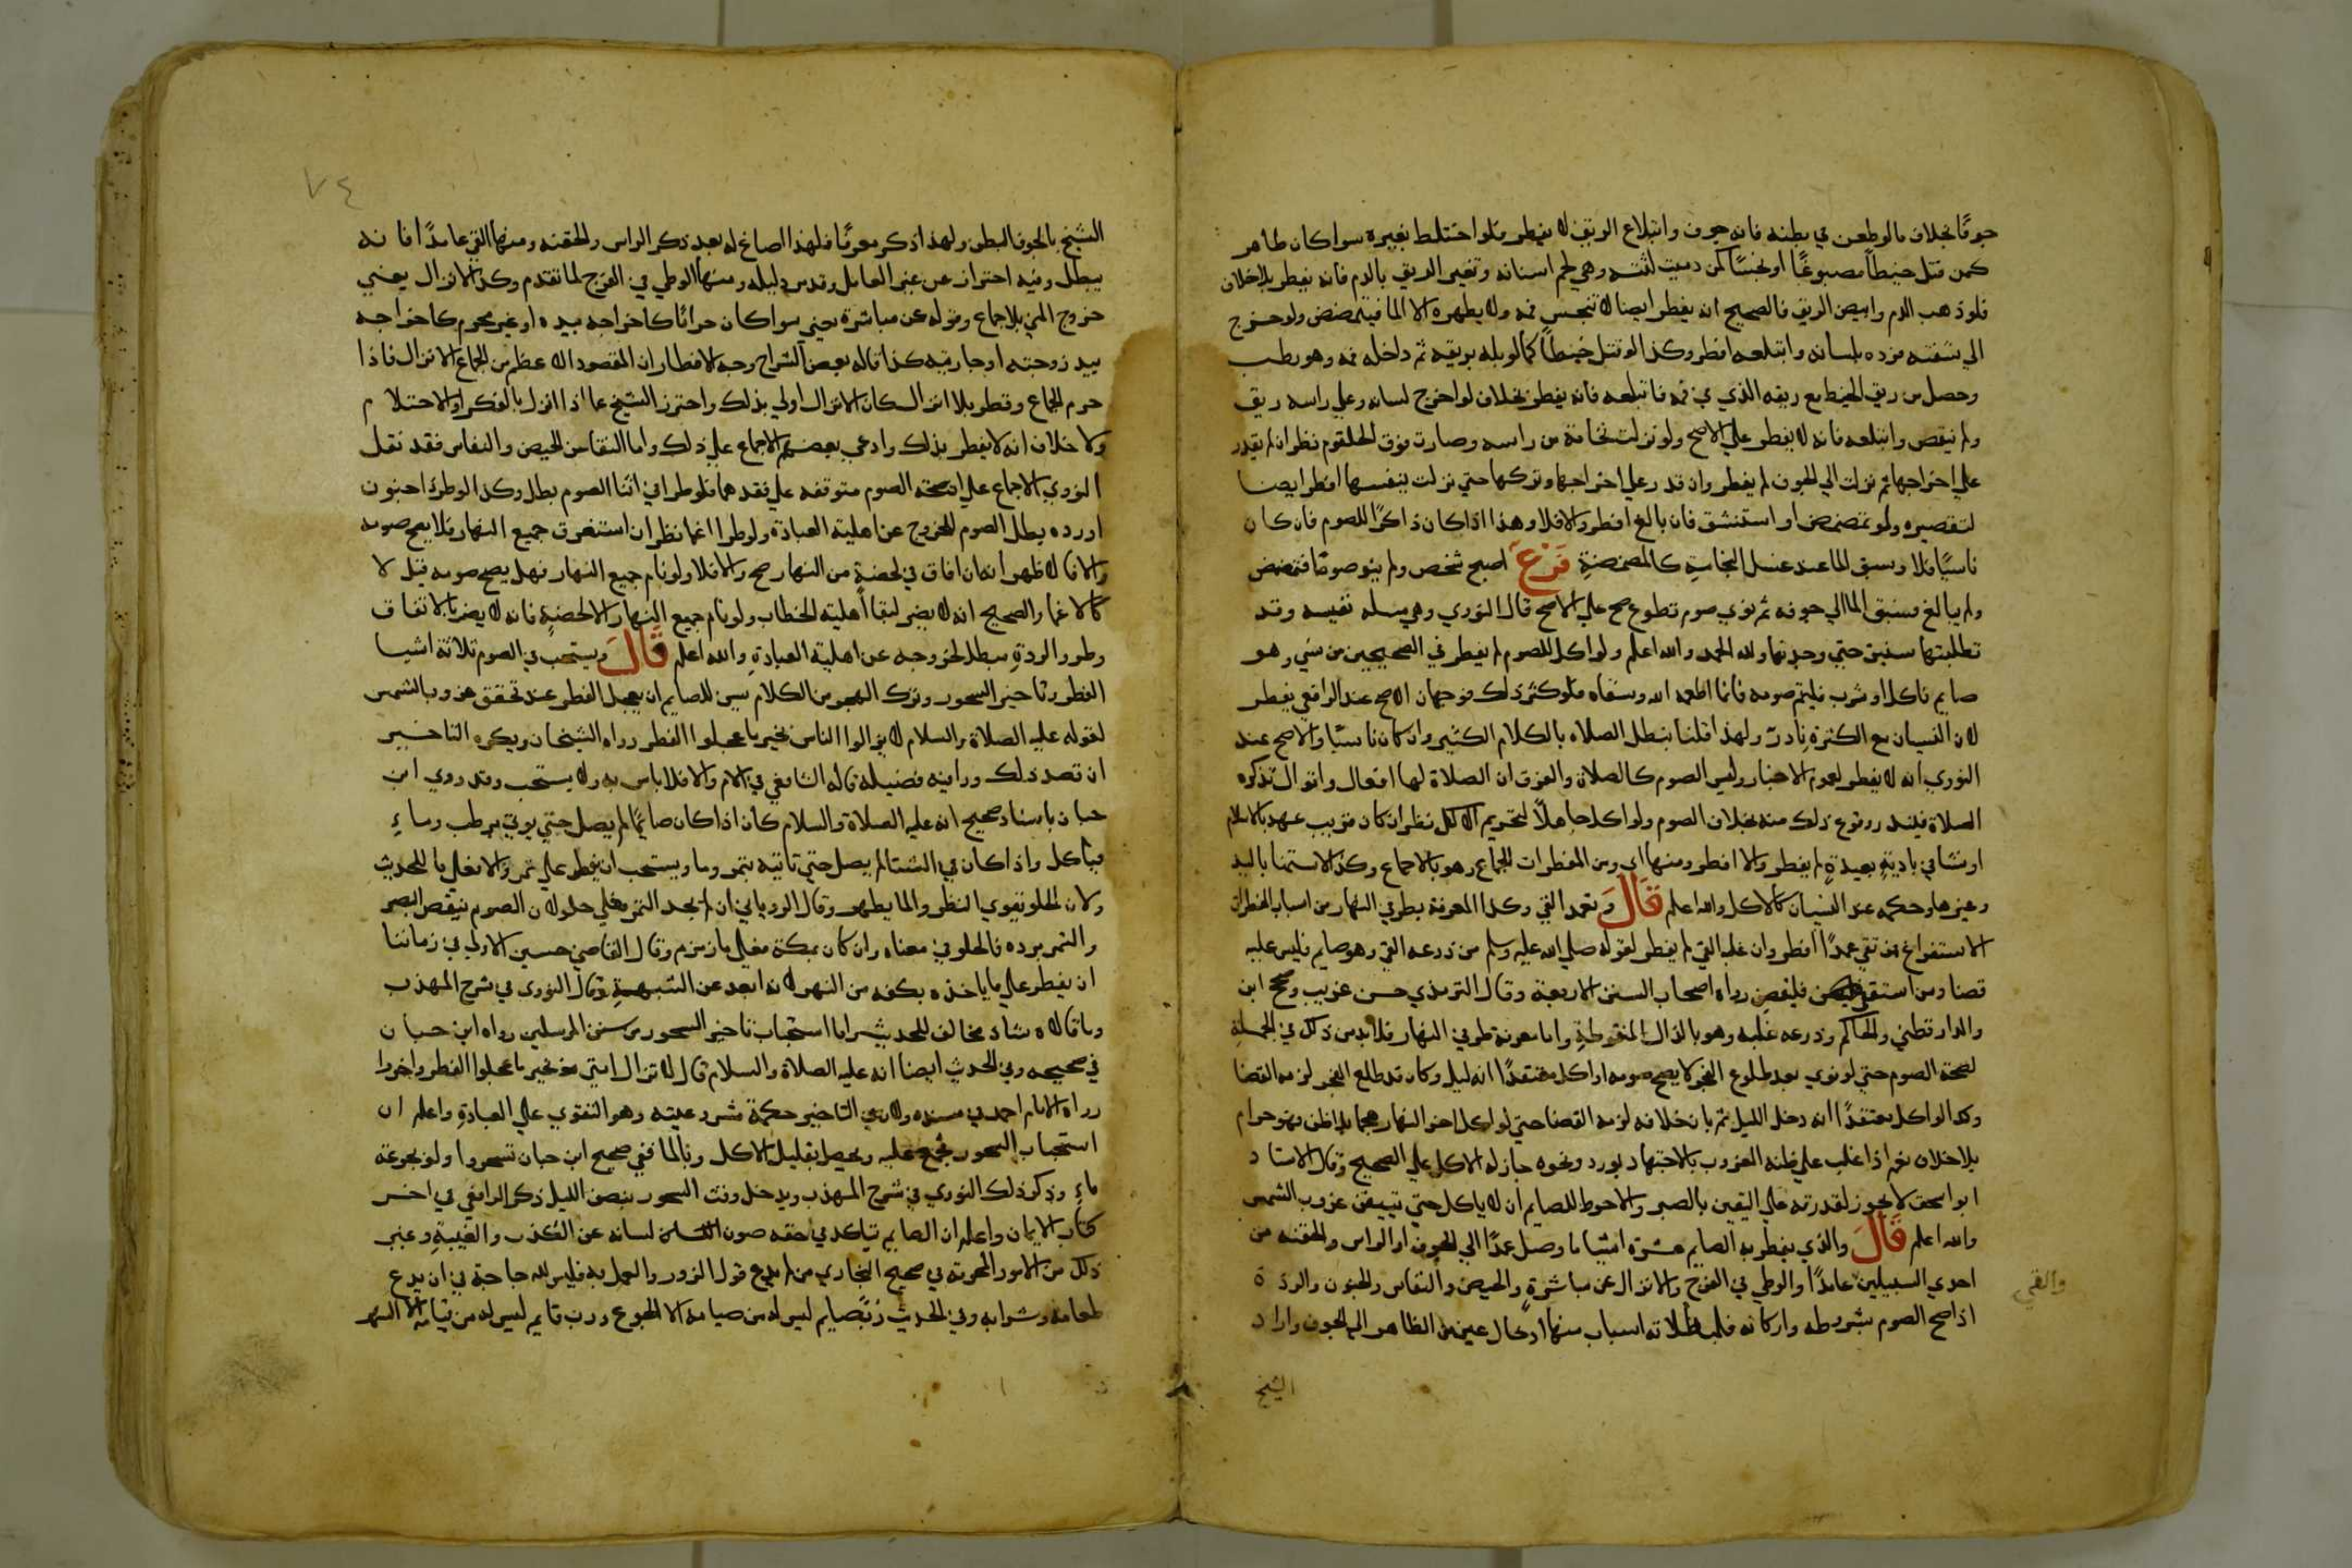 جوفا بخلاف مالوطعن في بطنه فانه جوف وابتلاع الريق لا يفطر فلو اختلط بغيره سوا كان طاهر
كمن فتل خيطا مصبوغا او نجسا كمن دميت لثته وهي لحم اسنانه وتغير الريق بالدم فانه يفطر بلا خلاف
فلو ذهب الدم وابيض الريق فالصحيح انه يفطر ايضا لانه تنجس فمه ولا يطهره الا الما فيتمضمض ولو خرج
الي شفته فرده بلسانه وابتلعه افطر وكذا لو فتل خيطا كما لو بله بريقه ثم داخله فمه وهو رطب
وحصل من ريق الخيط مع ريقه الذي في فمه فابتلعه فانه يفطر بخلاف لو اخرج لسانه وعلي راسه ريق
ولم ينفص وابتلعه فانه لا يفطر علي الاصح ولو نزلت نخامة من راسه وصارت فوق الحلقوم نظر ان لم يقدر
علي اخراجها ثم نزلت الي الجوف لم يفطر وان قدر علي اخراجها وتركها حتي نزلت بنفسها افطر ايضا
لتقصيره ولو تمضمض او استنشق فان بالغ افطر والا فلا وهذا اذا كان ذاكرا للصوم فان كان
ناسيا فلا وسبق الما عند غسل النجاسة كالمضمضة فرع اصبح شخص ولم ينو صوما فتمضمض
ولم يبالغ فسبق الما الي جوفه ثم نوي صوم تطوع صح علي الاصح قال النووي وهي مسله نفيسه وقد
تطلبتها سنين حتي وجدتها ولله الحمد والله اعلم ولو اكل للصوم لم يفطر ففي الصحيحين من نسي وهو
صايم فاكل او شرب فليتم صومه فانما اطعمه الله وسقاه فلو كثر ذلك فوجهان الاصح عند الرافعي يفطر
لان النسيان مع الكثرة نادر ولهذا قلنا تبطل الصلاه بالكلام الكثير وان كان ناسيا والاصح عند
النووي انه لا يفطر لعموم الاخبار وليس الصوم كالصلاة والفرق ان الصلاة لها افعال واقوال تذكره
الصلاة فيندر وقوع ذلك منه بخلاف الصوم ولو اكل جاهلا لتحريم الاكل نظر ان كان قريب عهد بالاسلام
او نشا في بادية بعيدة لم يفطر والا افطر ومنها اي ومن المفطرات الجماع وهو بالاجماع وكذا الاستمنا باليد
وغيرها وحكمه عند النسيان كالاكل والله اعلم قال وتعمد القي وكذا المعرفة بطرفي النهار من اسباب الفطر ان
الاستفراغ فمن تقي عمدا افطر وان غلبه القي لم يفطر لقوله صلي الله عليه وسلم من ذرعه القي وهو صايم فليس عليه
قضا ومن استقي فليقض رواه اصحاب السنن الاربعة وقال الترمذي حسن غريب وصححه ابن
والدارقطني والحاكم وذرعه غلبه وهو بالذال المنقوطة واما معرفة طرفي النهار فلا بد من ذلك في الجملة
لصحة الصوم حتي لو نوي بعد طلوع الفجر لا يصح صومه او اكل معتقدا انه ليل وكان قد طلع الفجر لزمه القضا
وكذا لو اكل معتقدا انه دخل الليل ثم بان خلافه لزمه القضا حتي لو اكل اخر النهار هجما بلا ظن فهو حرام
بلا خلاف نعم اذا غلب علي ظنه الغروب بالاجتهاد بورد ونحوه جاز له الاكل علي الصحيح وقال الاستاد
ابو اسحق لا يجوز لقدرته علي اليقين بالصبر والاحوط للصايم ان لا ياكل حتي تيقن غروب الشمس
والله اعلم قال والذي يفطر به الصايم عشرة اشيا ما وصل عمدا الي الجوف او الراس والحقنه من
احدي السبيلين عامدا والوطي في الفرج والانزال عن مباشرة والحيض والنفاس والجنون والردة
والقي
اذا صح الصوم بشروطه واركانه فلبطلانه اسباب منها ادخال عين من الظاهر الي الجوف واراد
الشيخ
٧٤
الشيخ بالجوف البطن ولهذا ذكر معرفا فلهذا اصاغ له بعد ذكر الراس والحقنه ومنها القي عامدا فانه
يبطل وفيه احتراز عن غير العامد وقد مر دليله ومنها الوطي في الفرج لما تقدم وكذا الانزال يعني
خروج المني بلا جماع وقوله عن مباشرة يعني سوا كان حراما كاخراجه بيده او غير محرم كاخراجه
بيد زوجته او جاريته كذا قاله بعض الشراح وجه الافطار ان المقصود الاعظم من الجماع الانزال فاذا
حرم الجماع وفطر بلا انزال كان الانزال اولي بذلك واحترز الشيخ عما اذا انزل بالفكر او الاحتلام
ولا خلاف انه لا يفطر بذلك وادعي بعضهم الاجماع علي ذلك واما النقا من الحيض والنفاس فقد نقل
النووي الاجماع علي ان صحة الصوم متوقفه علي فقدهما فلو طرا في اثنا الصوم بطل وكذا لو طرا جنون
او رده بطل الصوم للخروج عن اهلية العبادة ولو طرا اغما نظر ان استغرق جميع النهار فلا يصح صومه
والا فالاظهر انه ان افاق في لحضة من النهار صح والا فلا ولو نام جميع النهار فهل يصح صومه قيل لا
كالاغما والصحيح انه لا يضر لبقا اهلية الخطاب ولو نام جميع النهار الا لحضة فانه لا يضر بالاتفاق
وطرو الردة مبطل لخروجه عن اهلية العبادة والله اعلم قال ويستحب في الصوم ثلاثة اشيا
الفطر وتاخير السحور وترك الهجر من الكلام يسن للصايم ان يعجل الفطر عند تحقق غروب الشمس
لقوله عليه الصلاة والسلام لا يزالوا الناس بخير ما عجلوا الفطر رواه الشيخان ويكره التاخير
ان قصد ذلك وراي فيه فضيله قاله الشافعي في الام والا فلا باس به ولا يستحب وقد روي ابن
حبان باسناد صحيح انه عليه الصلاة والسلام كان اذا كان صايما لم يصل حتي يوتي برطب وماء
فياكل واذا كان في الشتا لم يصل حتي تاتيه بتمر وما ويستحب ان يفطر علي تمر والا فعلي ما للحديث
ولان الحلو يقوي النظر والما يطهر وقال الروياني ان لم يجد التمر فعلي حلو لان الصوم ينقص البصر
والتمر يرده فالحلو في معناه وان كان بمكة فعلي ما زمزم وقال القاضي حسين الاولي في زماننا
ان يفطر علي ما ياخذه بكفه من النهر لانه ابعد عن الشبهة وقال النووي في شرح المهذب
وما قالاه شاذ مخالف للحديث واما استحباب تاخير السحور من سنن المرسلين رواه ابن حبان
في صحيحه وفي الحديث ايضا انه عليه الصلاة والسلام قال لا تزال امتي بخير ما عجلوا الفطر واخروا
رواه الامام احمد في مسنده ولان في التاخير حكمة مشروعيته وهو التقوي علي العبادة واعلم ان
استحباب السحور مجمع عليه ويحصل بقليل الاكل وبالما ففي صحيح ابن حبان تسحروا ولو بجرعة
ماء وذكر ذلك النووي في شرح المهذب ويدخل وقت السحور بنصف الليل ذكره الرافعي في اخر
كتاب الايمان واعلم ان الصايم يتاكد في حقه صون لسانه عن الكذب والغيبة وغير
ذلك من الامور المحرمة في صحيح البخاري من لم يدع قول الزور والعمل به فليس لله حاجة في ان يدع
طعامه وشرابه وفي الحديث رب صايم ليس له من صيامه الا الجوع ورب قايم ليس له من قيامه الا السهر